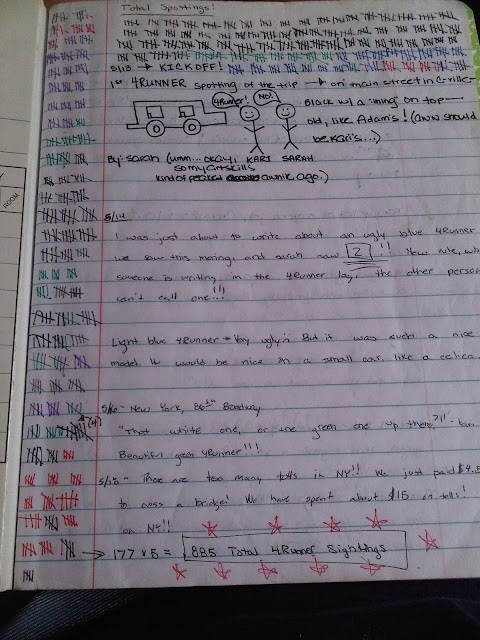 Total Spottings!
5/13 → KICKOFF!
1st 4RUNNER spotting of the trip → on main street in G-ville
4Runner! NO!
Black w/ a "thing" on top —
old, like Adam's! (aww should
be Kari's...)
By: Sarah (umm... okay, KARI SARAH
so my art skills
kind of peaked awhile ago.)
5/14
I was just about to write about an ugly blue 4Runner
we saw this morning, and Sarah saw 2!! New rule, wh
someone is writing in the 4Runner log, the other person
can't call one!!!
Light blue 4Runner = Very ugly. But it was such a nice
model. It would be nice on a small car, like a celica.
5/16 - New York, 86th Broadway
"That white one, or the green one up there?!!" -
Beautiful green 4Runner!!!
- There are too many tolls in NY!! We just paid $4.5
to cross a bridge! We have spent about $15 in tolls!
on NY!!
→ 177 x 5 = 885 Total 4Runner Sightings
ROOM